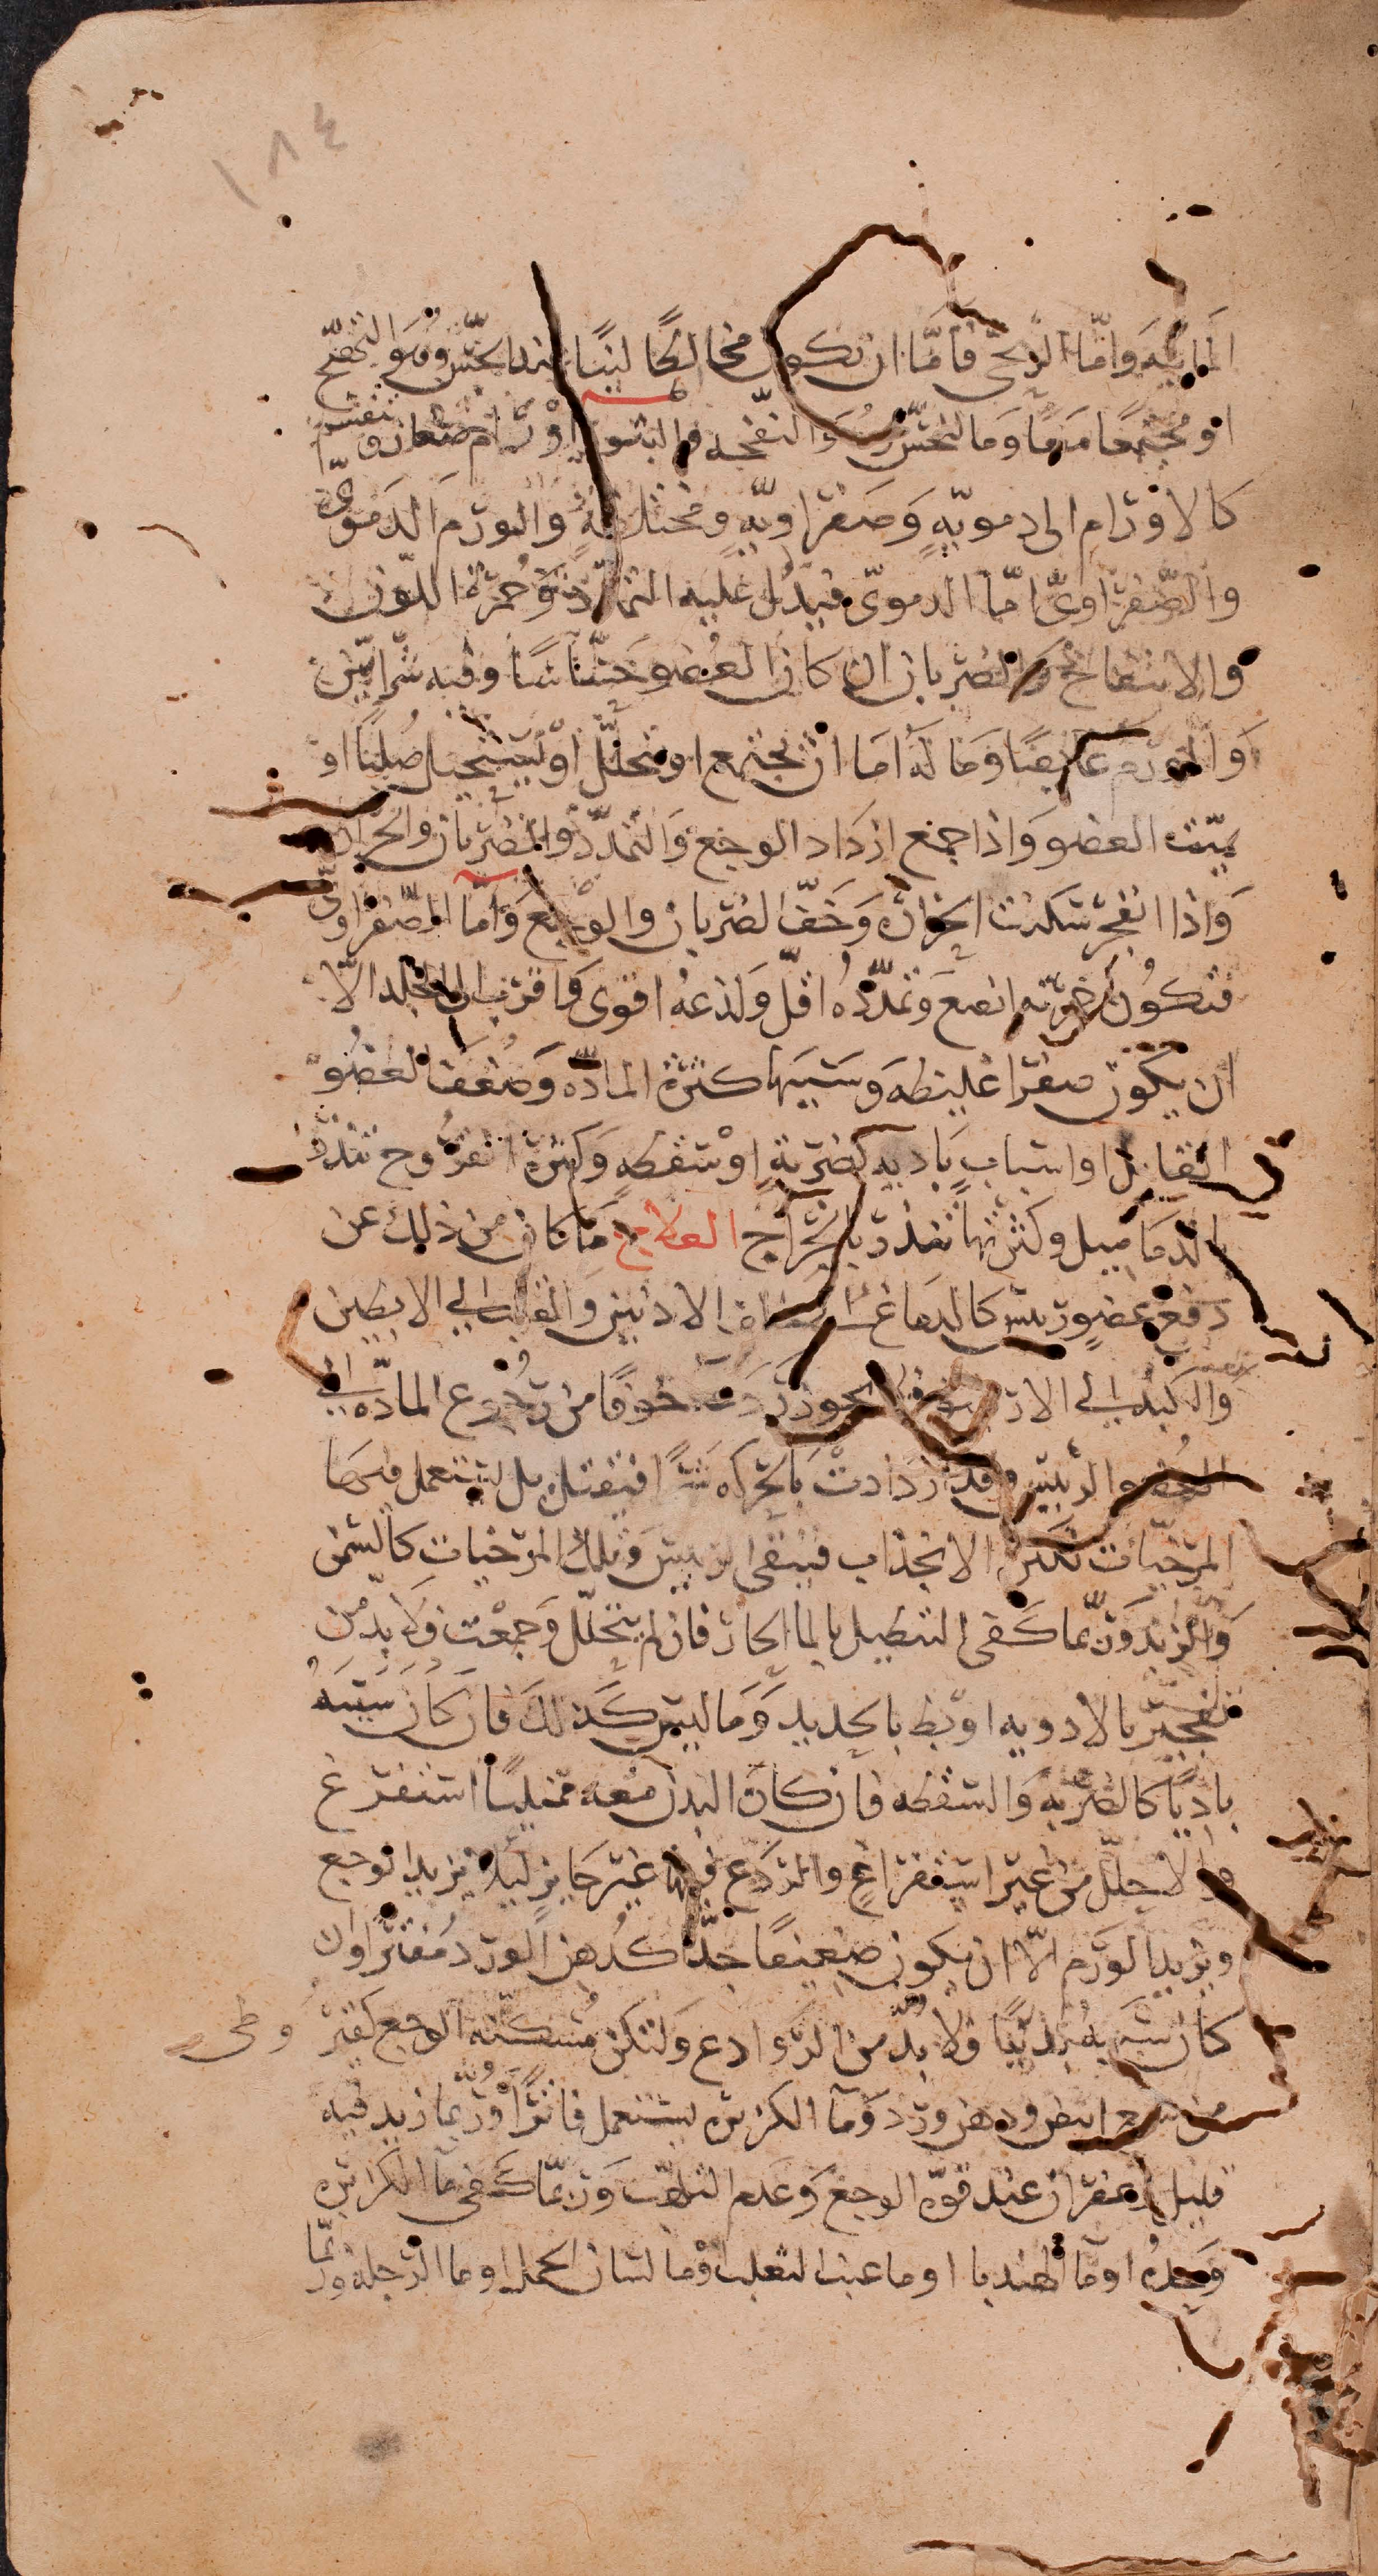 ١٨٤
المائيه واما الريحي فاما ان تكون مخالطا لينا عند الحس وهو التهبج
او مجتمعا مقاوما للحس وهو النفخه والبثور اورام صغار تنقسم
كالاورام الى دمويه وصفراويه ومختلطه والورم الدموي
والصفراوي اما الدموي فيدل عليه التمدد وحمرة اللون
والانتفاخ والضربان ان كان العضو حساسا وفيه شرايين
والورم غايصا وماله اما ان يجتمع او يتحلل او يستحيل صلبا او
يميت العضو واذا جمع ازداد الوجع والتمدد والضربان والحراره
واذا انفجر سكنت الحراره وخف الضربان والوجع واما الصفراوي
فتكون حمرته انصع وتمدده اقل ولذعه اقوى واقرب الى الجلد الا
ان يكون صفرا غليظه وسببها كثرة الماده وضعف العضو
القابل او اسباب باديه كضربة او سقطه وكثرة القروح تنذر
بالدماميل وكثرتها تنذر بالخراج العلاج ما كان من ذلك عن
دفع عضو رييس كالدماغ الى الاذنين والقلب الى الابطين
والكبد الى فلا يجوز ردعه خوفا من رجوع الماده الى
العضو الرييس وقد ازدادت بالحركه شرا فيقتل بل يستعمل فيها
المرخيات لتكثر الانجذاب فينقى الرييس وتلك المرخيات كالسمن
والزبد وربما كفى التنطيل بالما الحار فان لم يتحلل وجمعت ولا بد من
تفجير بالادويه او بط بالحديد وما ليس كذلك فان كان سببه
باديا كالضربه والسقطه فان كان البدن معه ممتليا استفرغ
والا حلل من غير استفراغ والردع فيها غير جايز ليلا يزيد الوجع
ويزيد الورم الا ان يكون ضعيفا جدا كدهن الورد مفترا وان
كان سببه بدنيا فلا بد من الروادع ولتكن مسكنه الوجع كقير وطي
من شمع ابيض ودهن ورد وما الكزبره يستعمل فاترا وربما زيد فيه
قليل زعفران عند قوة الوجع وعدم التلهب وربما كفى ما الكزبره
وحده او ما الهندبا او ما عنب الثعلب وما لسان الحمل او ما الرجله وربما